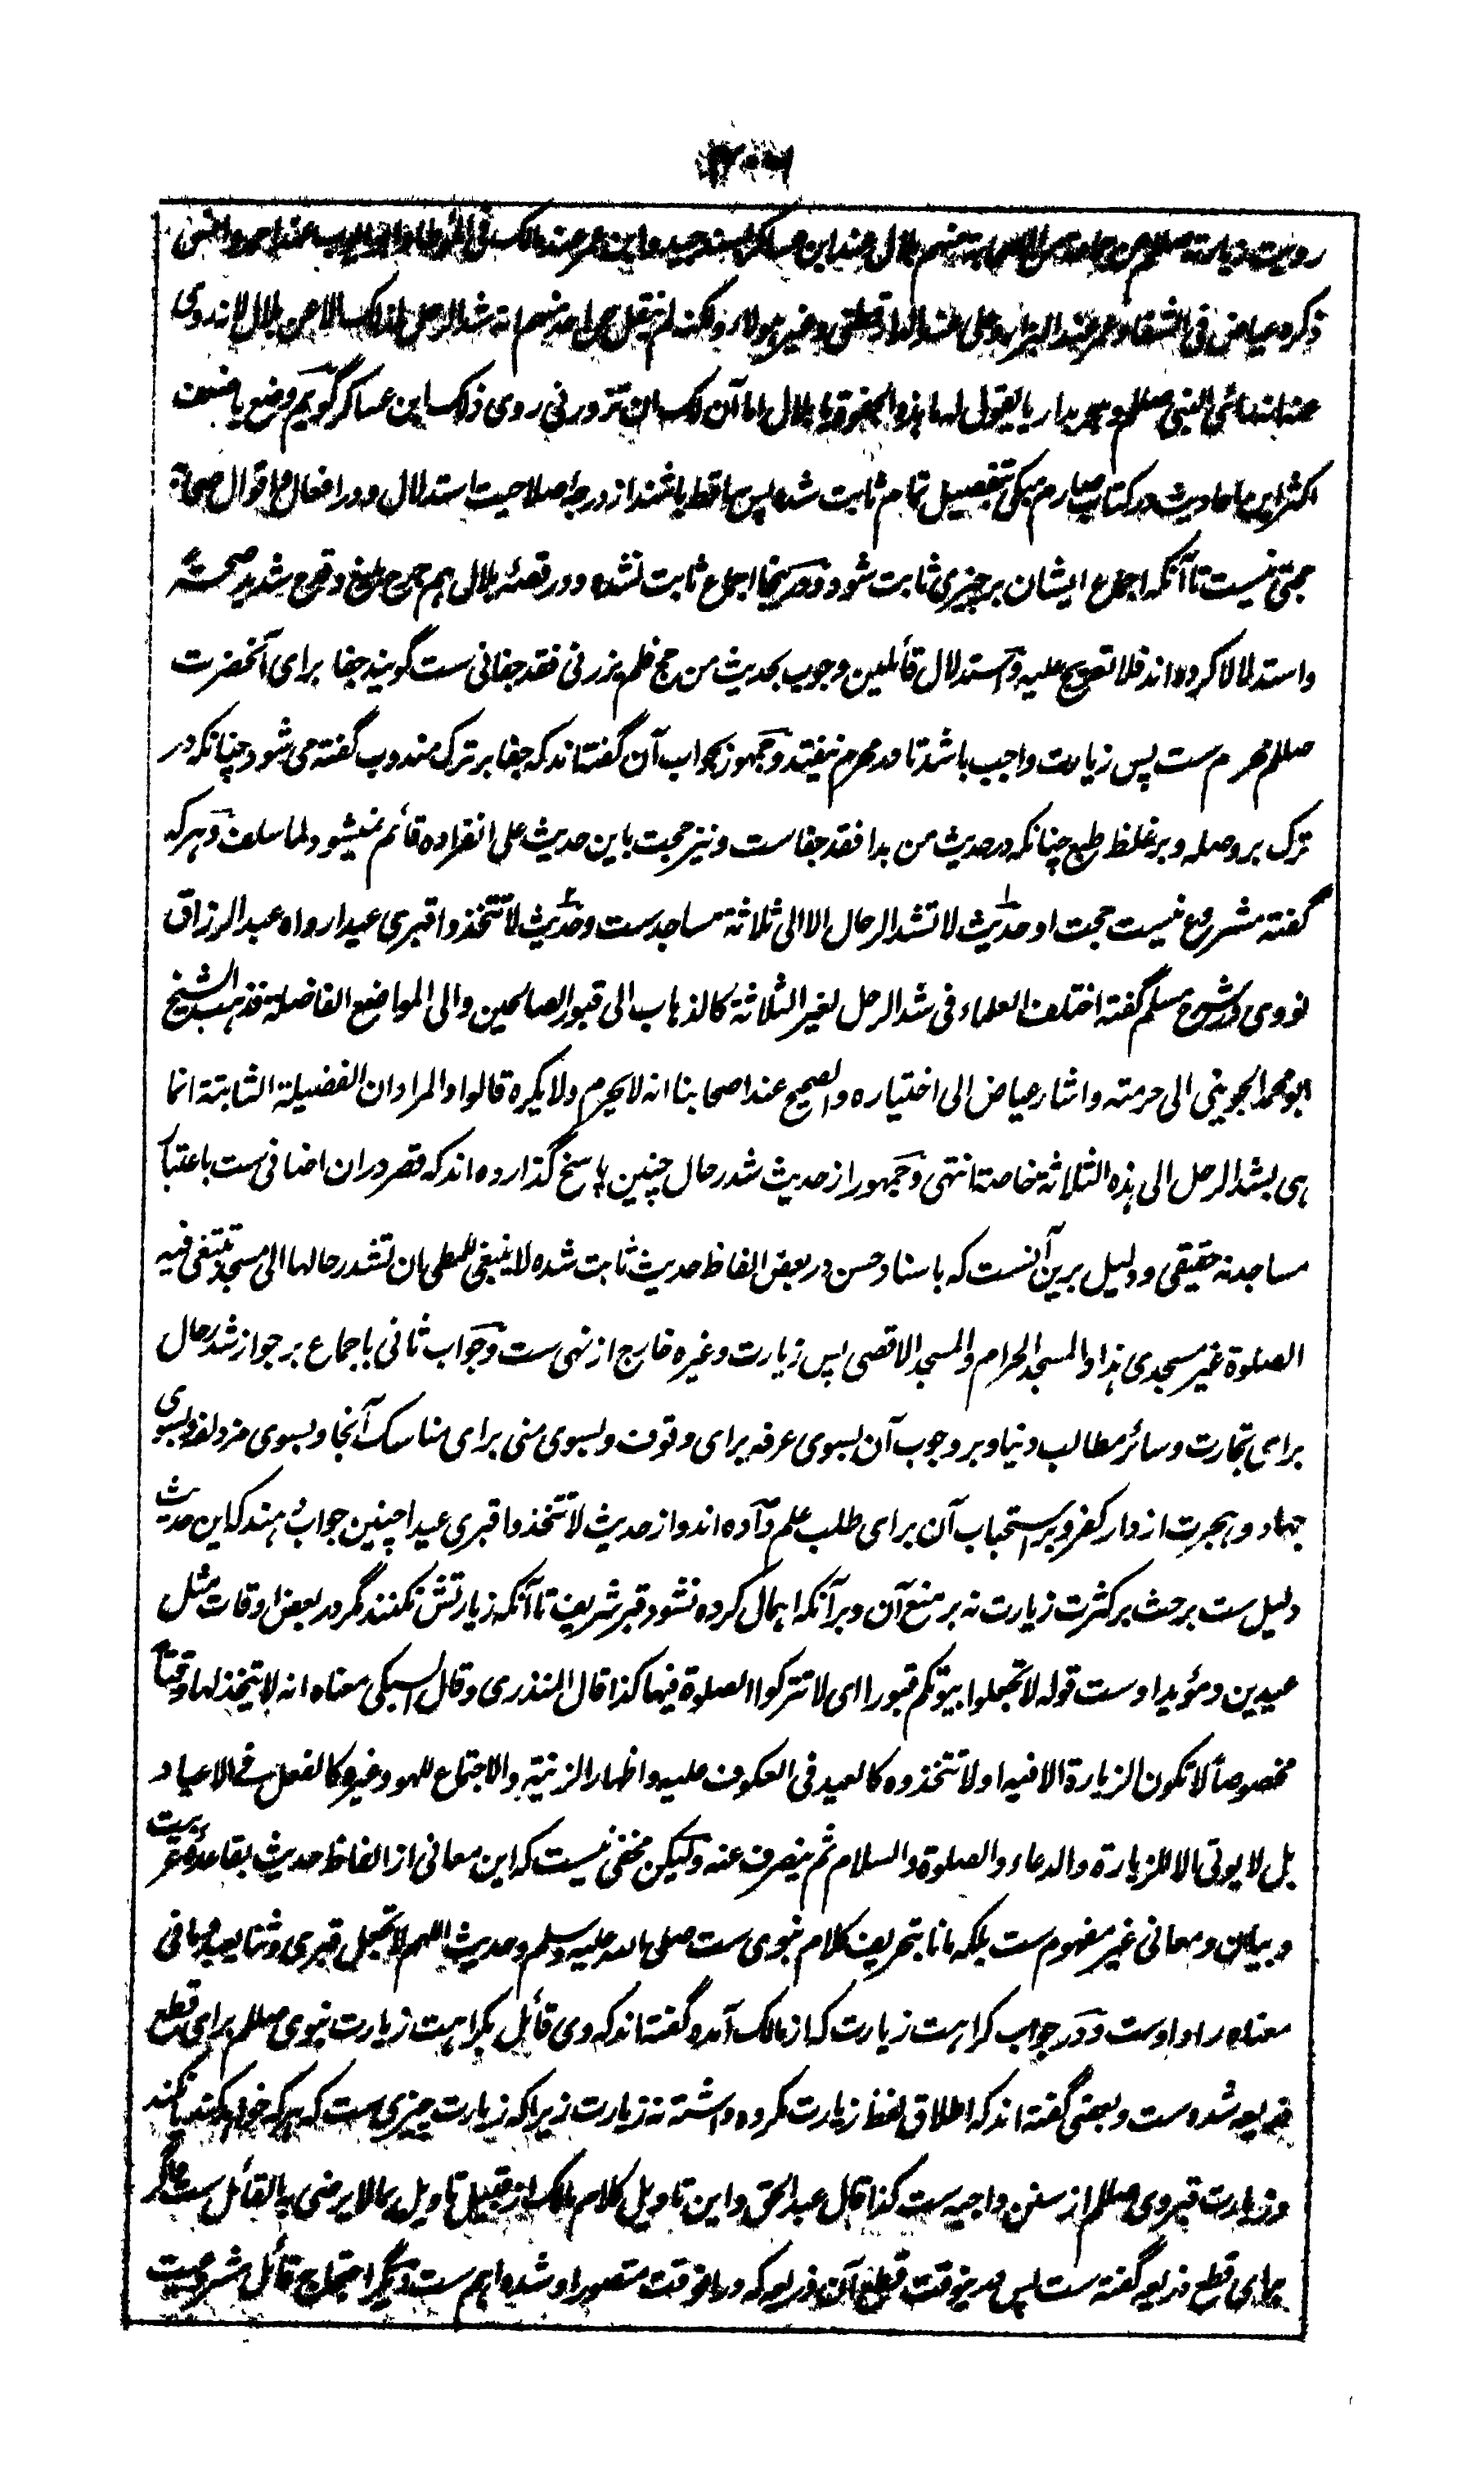 رویت زیارته صلعم عن جماعة من الصحابة منهم بلال عند ابن عساکر بسند جید وابن عمر عند مالک فی الموطا وابو ایوب عند احمد وانس
ذکره عیاض فی الشفا وعمر عند البزار وعلی عند الدارقطنی وغیر هولاء ولکنه لم ینقل عن احد منهم انه شد الرحل لذلک الا عن بلال لانه روی
عنه انه رای النبی صلعم وهو بداریا یقول له ما هذه الجفوة یا بلال اما آن لک ان تزورنی روی ذلک ابن عساکر گویم وضع یا ضعف
اکثر این احادیث در کتاب صارم منکی بتفصیل تمام ثابت شده پس ساقط باشند از درجه صلاحیت استدلال و در افعال و اقوال صحابه
حجتی نیست تا آنکه اجماع ایشان بر چیزی ثابت شود و در اینجا اجماع ثابت نشده و در قصه بلال هم جرح بلیغ و قدح شدید صحتہً
واستدلالا کرده‌اند فلا تعریج علیه و استدلال قائلین وجوب بحدیث من حج فلم یزرنی فقد جفانی ست گویند جفا برای آنحضرت
صللم محرم ست پس زیارت واجب باشد تا در محرم نیفتد و جمهور بجواب آن گفته‌اند که جفا بر ترک مندوب گفته می‌شود چنانکه در
ترک بر وصله و بر غلظ طبع چنانکه در حدیث من بدا فقد جفاست و نیز حجت باین حدیث علی انفراده قائم نمیشود لما سلف و هرکه
گفته مشروع نیست حجت او حدیث لا تشد الرحال الا الی ثلاثة مساجد ست و حدیث لا تتخذوا قبری عیدا رواه عبد الرزاق
نووی در شرح مسلم گفته اختلف العلماء فی شد الرحل لغیر الثلاثة کالذهاب الی قبور الصالحین والی المواضع الفاضلة فذهب الشیخ
ابو محمد الجوینی الی حرمته واشار عیاض الی اختیاره والصحیح عند اصحابنا انه لا یحرم ولا یکره قالوا والمراد ان الفضیلة الثابتة انما
هی بشد الرحل الی هذه الثلاثة خاصة انتهی و جمهور از حدیث شد رحال چنین پاسخ گذارده‌اند که قصر دران اضافی ست باعتبار
مساجد نه حقیقی و دلیل برین آنست که باسناد حسن در بعض الفاظ حدیث ثابت شده لا ینبغی للمطی ان تشد رحالها الی مسجد تبتغی فیه
الصلوة غیر مسجدی هذا والمسجد الحرام والمسجد الاقصی پس زیارت وغیره خارج از نهی ست و جواب ثانی باجماع بر جواز شد رحال
برای تجارت و سائر مطالب دنیا و بر وجوب آن بسوی عرفه برای وقوف و بسوی منی برای مناسک آنجا و بسوی مزدلفه و بسوی
جهاد و هجرت از دار کفر و بر استحباب آن برای طلب علم داده‌اند و از حدیث لا تتخذوا قبری عیدا چنین جواب دهند که این حدیث
دلیل ست بر حث بر کثرت زیارت نه بر منع آن و بر آنکه اهمال کرده نشود قبر شریف تا آنکه زیارتش نکنند مگر در بعض اوقات مثل
عیدین و مؤید اوست قوله لا تجعلوا بیوتکم قبورا ای لا تترکوا الصلوة فیها کذا قال المنذری وقال السبکی معناه انه لا یتخذ لها وقتاً
مخصوصاً لا تکون الزیارة الا فیه او لا تتخذوه کالعید فی العکوف علیه واظهار الزینة والاجتماع للهو وغیره کالفعل فی الاعیاد
بل لا یوتی الا للزیارة والدعاء والصلوة والسلام ثم ینصرف عنه ولیکن مخفی نیست که این معانی از الفاظ حدیث بقاعده عربیت
و بیان و معانی غیر مفهوم ست بلکه مانا بتحریف کلام نبوی ست صلی الله علیه وسلم و حدیث اللهم لا تجعل قبری وثنا یعبد وما فی
معناه راد اوست و در جواب کراهت زیارت که از مالک آمده گفته‌اند که وی قائل بکراهت زیارت نبوی صللم برای قطع
ذریعه شده ست و بعضی گفته‌اند که اطلاق لفظ زیارت مکروه داشته نه زیارت زیرا که زیارت چیزی ست که هرکه خواهد کند یا نکند
و زیارت قبر وی صللم از سنن واجبه ست کذا قال عبد الحق و این تاویل کلام مالک از قبیل تاویل بما لا یرضی به القائل ست و اگر
برای قطع ذریعه گفته ست پس درینوقت قطع آن ذریعه که دران وقت متصور او شده اهم ست و دیگر احتجاج قائل مشروعیت